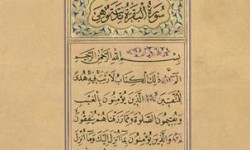 سورة البقرة وهي
بِسْمِ اللهِ الرَّحْمٰنِ الرَّحِيمِ
الم ذٰلِكَ الْكِتَابُ لَا رَيْبَ فِيهِ هُدًى
لِلْمُتَّقِينَ الَّذِينَ يُؤْمِنُونَ بِالْغَيْبِ
وَيُقِيمُونَ الصَّلٰوةَ وَمِمَّا رَزَقْنَاهُمْ يُنْفِقُونَ
وَالَّذِينَ يُؤْمِنُونَ بِمَا اُنْزِلَ اِلَيْكَ وَمَا اُنْزِلَ